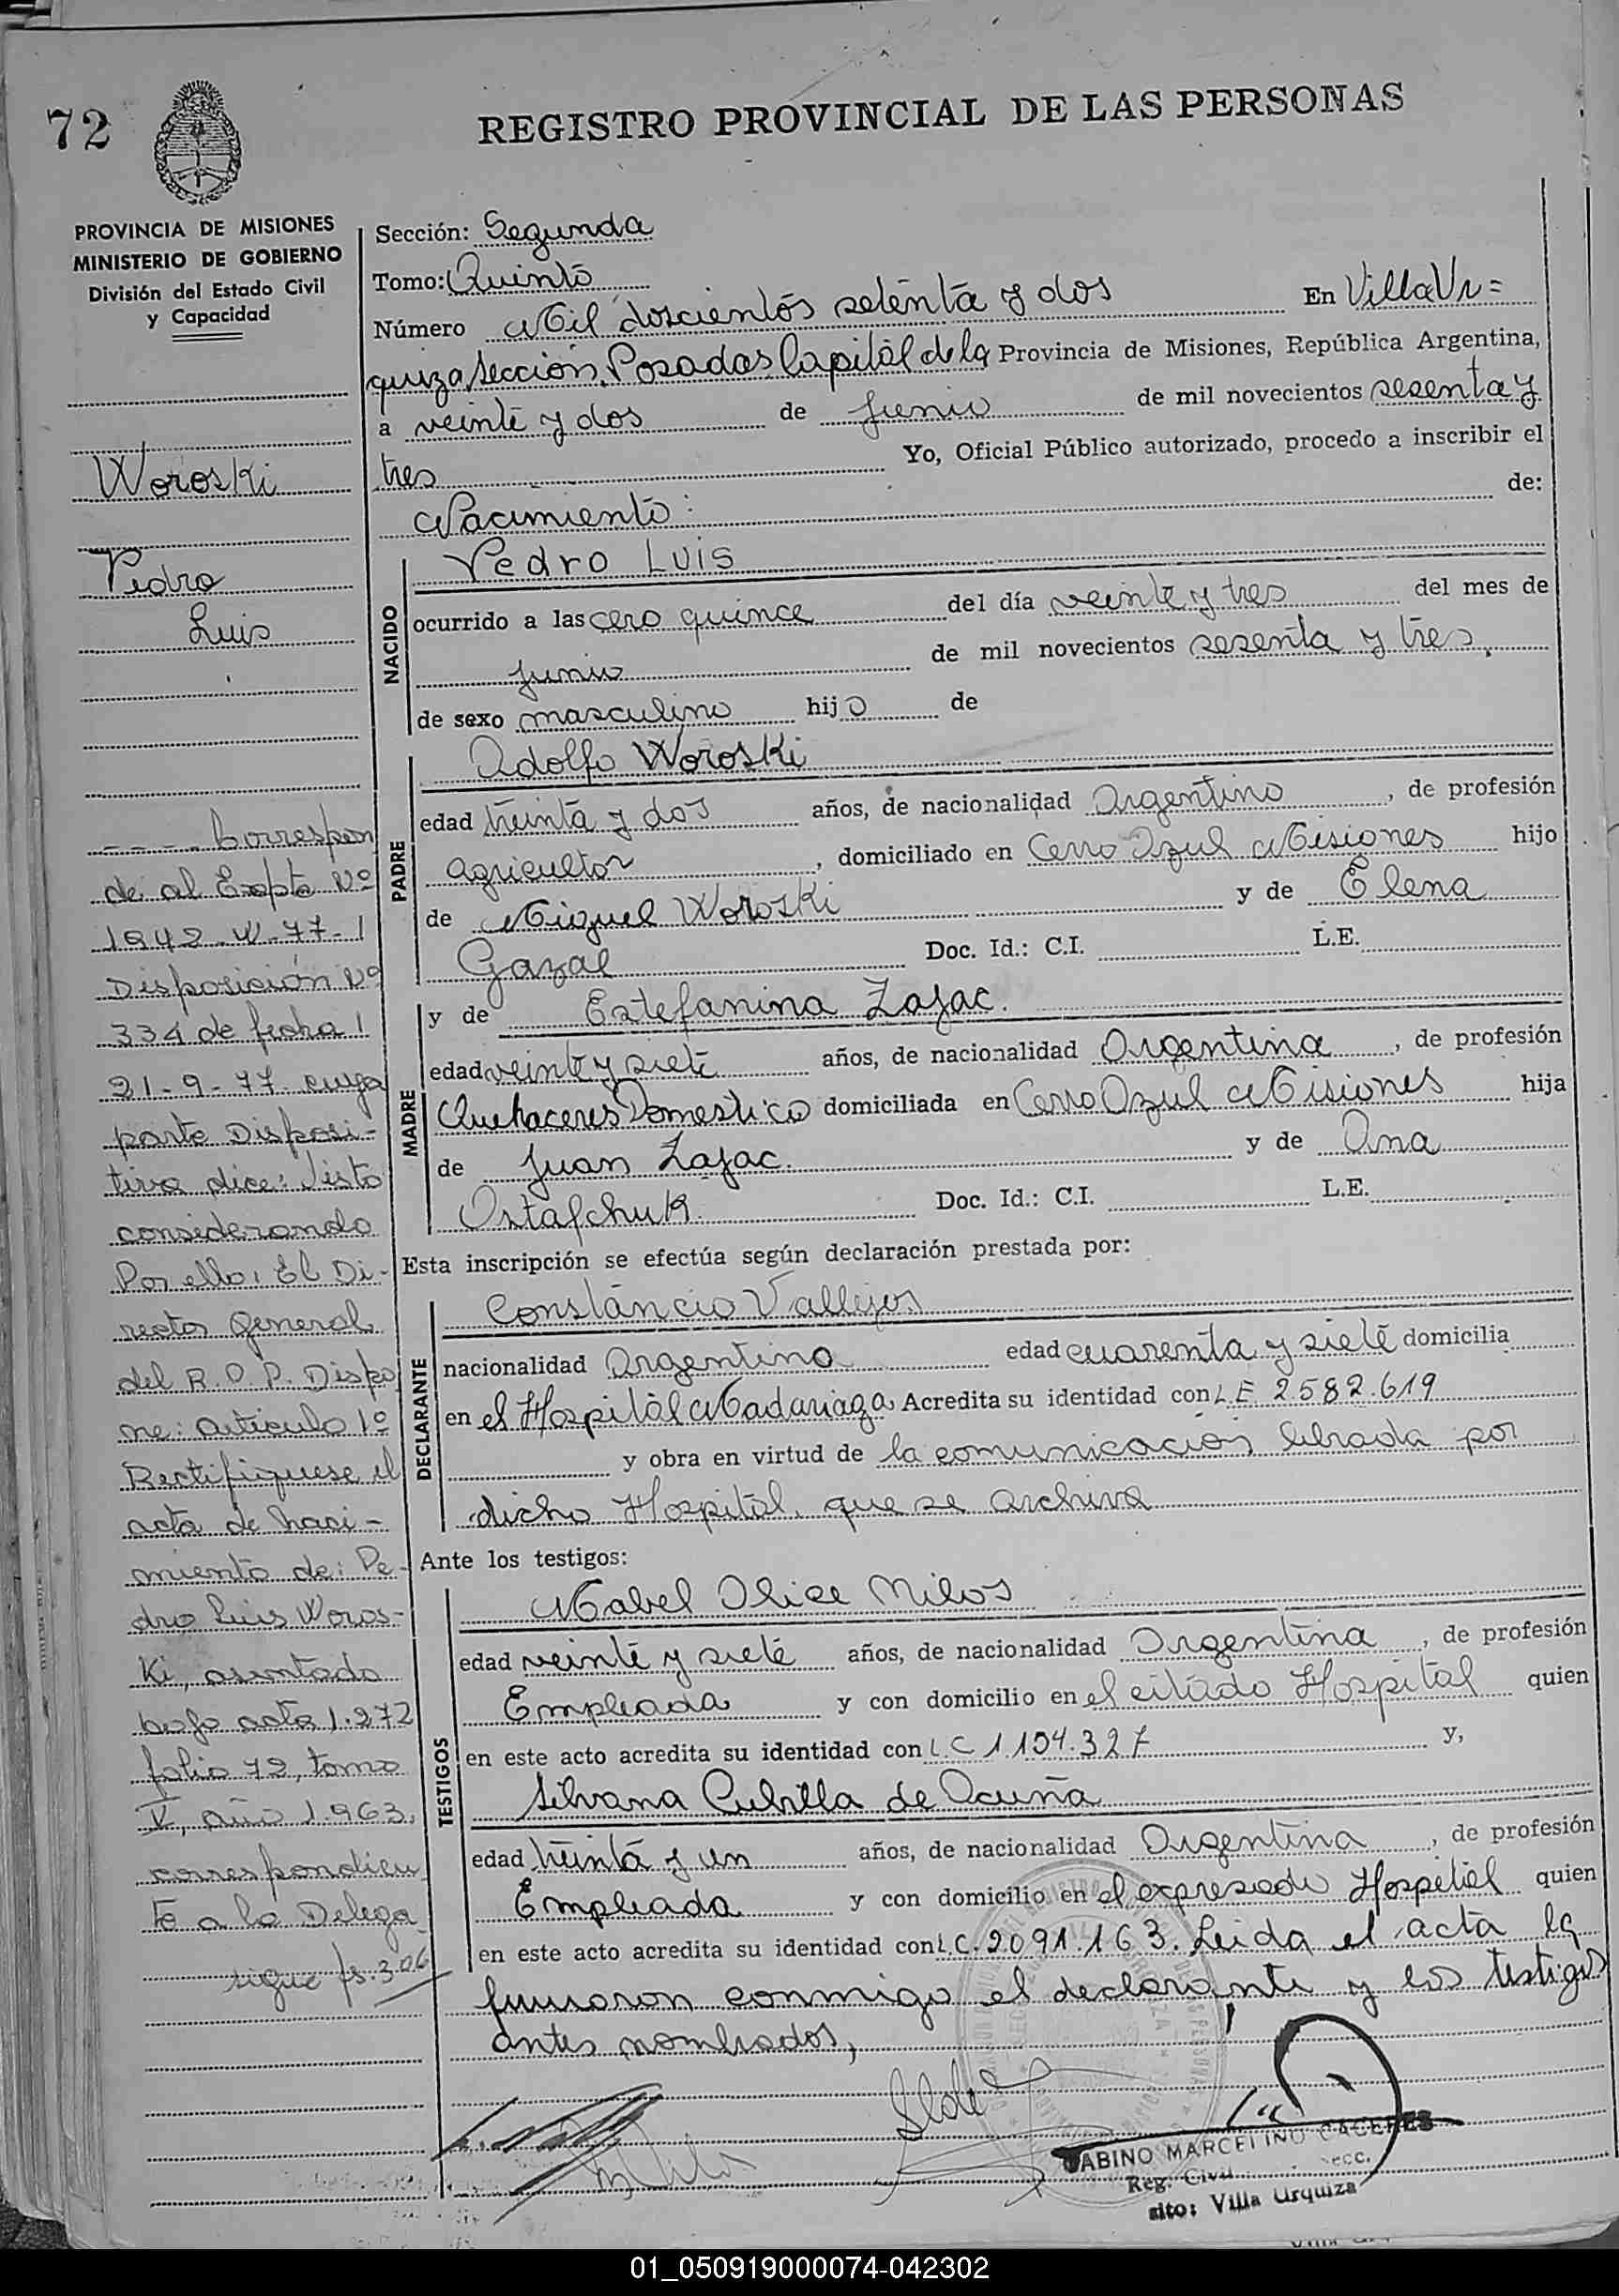 72
REGISTRO PROVINCIAL DE LAS PERSONAS
PROVINCIA DE MISIONES
MINISTERIO DE GOBIERNO
División del Estado Civil
y Capacidad
Sección: Segunda
Tomo: Quinto
Número Mil doscientos setenta y dos En Villa Ur=
quiza, sección, Posadas Capital de la Provincia de Misiones, República Argentina,
a veinte y dos de junio de mil novecientos sesenta y
tres Yo, Oficial Público autorizado, procedo a inscribir el
Nacimiento: de:
NACIDO
Pedro Luis
ocurrido a las cero quince del día veinte y tres del mes de
junio de mil novecientos sesenta y tres,
de sexo masculino hijo de
PADRE
Adolfo Woroski
edad treinta y dos años, de nacionalidad Argentino, de profesión
agricultor, domiciliado en Cerro Azul Misiones hijo
de Miguel Woroski y de Elena
Gazal Doc. Id.: C.I. L.E.
MADRE
y de Estefanina Zajac.
edad veinte y siete años, de nacionalidad Argentina, de profesión
Quehaceres Domestico domiciliada en Cerro Azul Misiones hija
de Juan Zajac. y de Ana
Ostafchuk. Doc. Id.: C.I. L.E.
Esta inscripción se efectúa según declaración prestada por:
DECLARANTE
Constancio Vallejos
nacionalidad Argentino edad cuarenta y siete domicilia
en el Hospital Madariaga Acredita su identidad con L.E. 2582.619
y obra en virtud de la comunicación librada por
dicho Hospital, que se archiva
Ante los testigos:
TESTIGOS
Mabel Milos
edad veinte y siete años, de nacionalidad Argentina, de profesión
Empleada y con domicilio en el citado Hospital quien
en este acto acredita su identidad con L.C 1.154.327 y,
Silvana Cubilla de Acuña
edad treinta y un años, de nacionalidad Argentina, de profesión
Empleada y con domicilio en el expresado Hospital quien
en este acto acredita su identidad con L.C. 2091.163. Leida el acta la
firmaron conmigo el declarante y los testigos
antes nombrados,
Woroski
Pedro
Luis
- - - - Correspon
de al Expte Nº
1942-W-77-1
Disposición Nº
334 de fecha 1
21-9-77 cuya
parte Disposi-
tiva dice: Visto
considerando
Por ello: El Di-
rector General
del R.O.P. Dispo
ne: Articulo 1º
Rectifiquese el
acta de naci-
miento de: Pe-
dro Luis Woros-
ki, asentada
bajo acta 1.272
folio 72, tomo
V, año 1.963,
correspondien
te a la Delega
sigue fs. 306
GABINO MARCELINO CACERES
Reg. Civil secc.
sito: Villa Urquiza
01_050919000074-042302